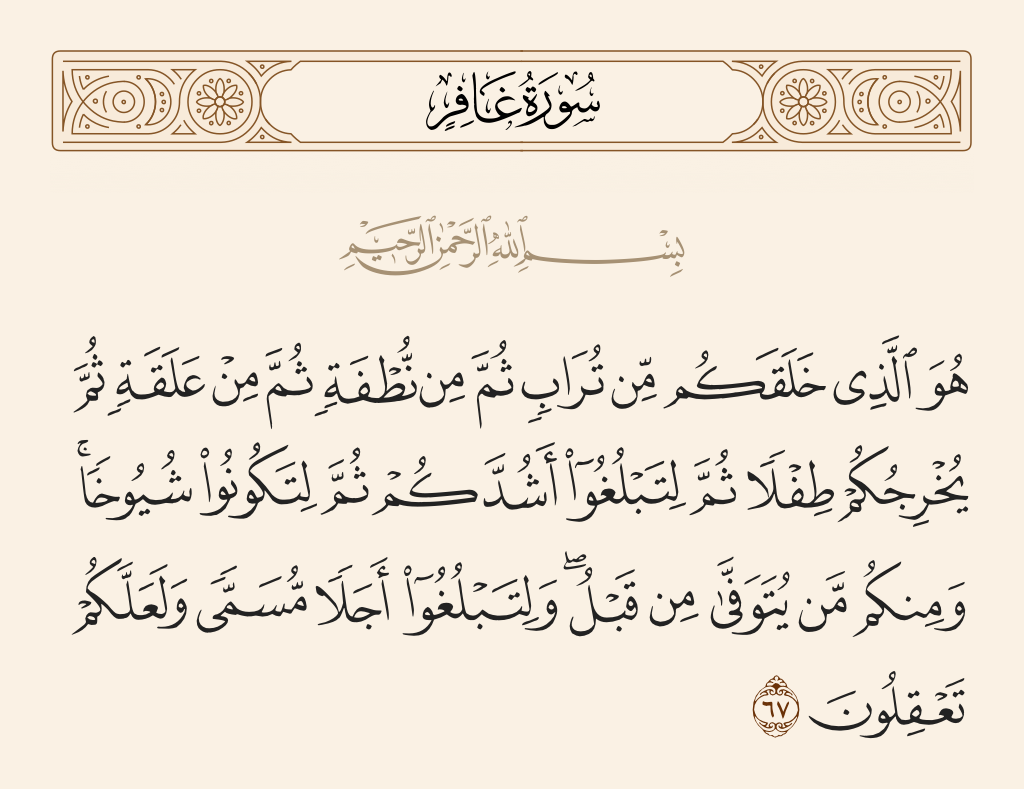 سُورَةُ غَافِرٍ
بِسْمِ ٱللَّهِ ٱلرَّحْمَٰنِ ٱلرَّحِيمِ
هُوَ ٱلَّذِى خَلَقَكُم مِّن تُرَابٍ ثُمَّ مِن نُّطْفَةٍ ثُمَّ مِنْ عَلَقَةٍ ثُمَّ
يُخْرِجُكُمْ طِفْلًا ثُمَّ لِتَبْلُغُوٓا۟ أَشُدَّكُمْ ثُمَّ لِتَكُونُوا۟ شُيُوخًا ۚ
وَمِنكُم مَّن يُتَوَفَّىٰ مِن قَبْلُ ۖ وَلِتَبْلُغُوٓا۟ أَجَلًا مُّسَمًّى وَلَعَلَّكُمْ
تَعْقِلُونَ ٦٧